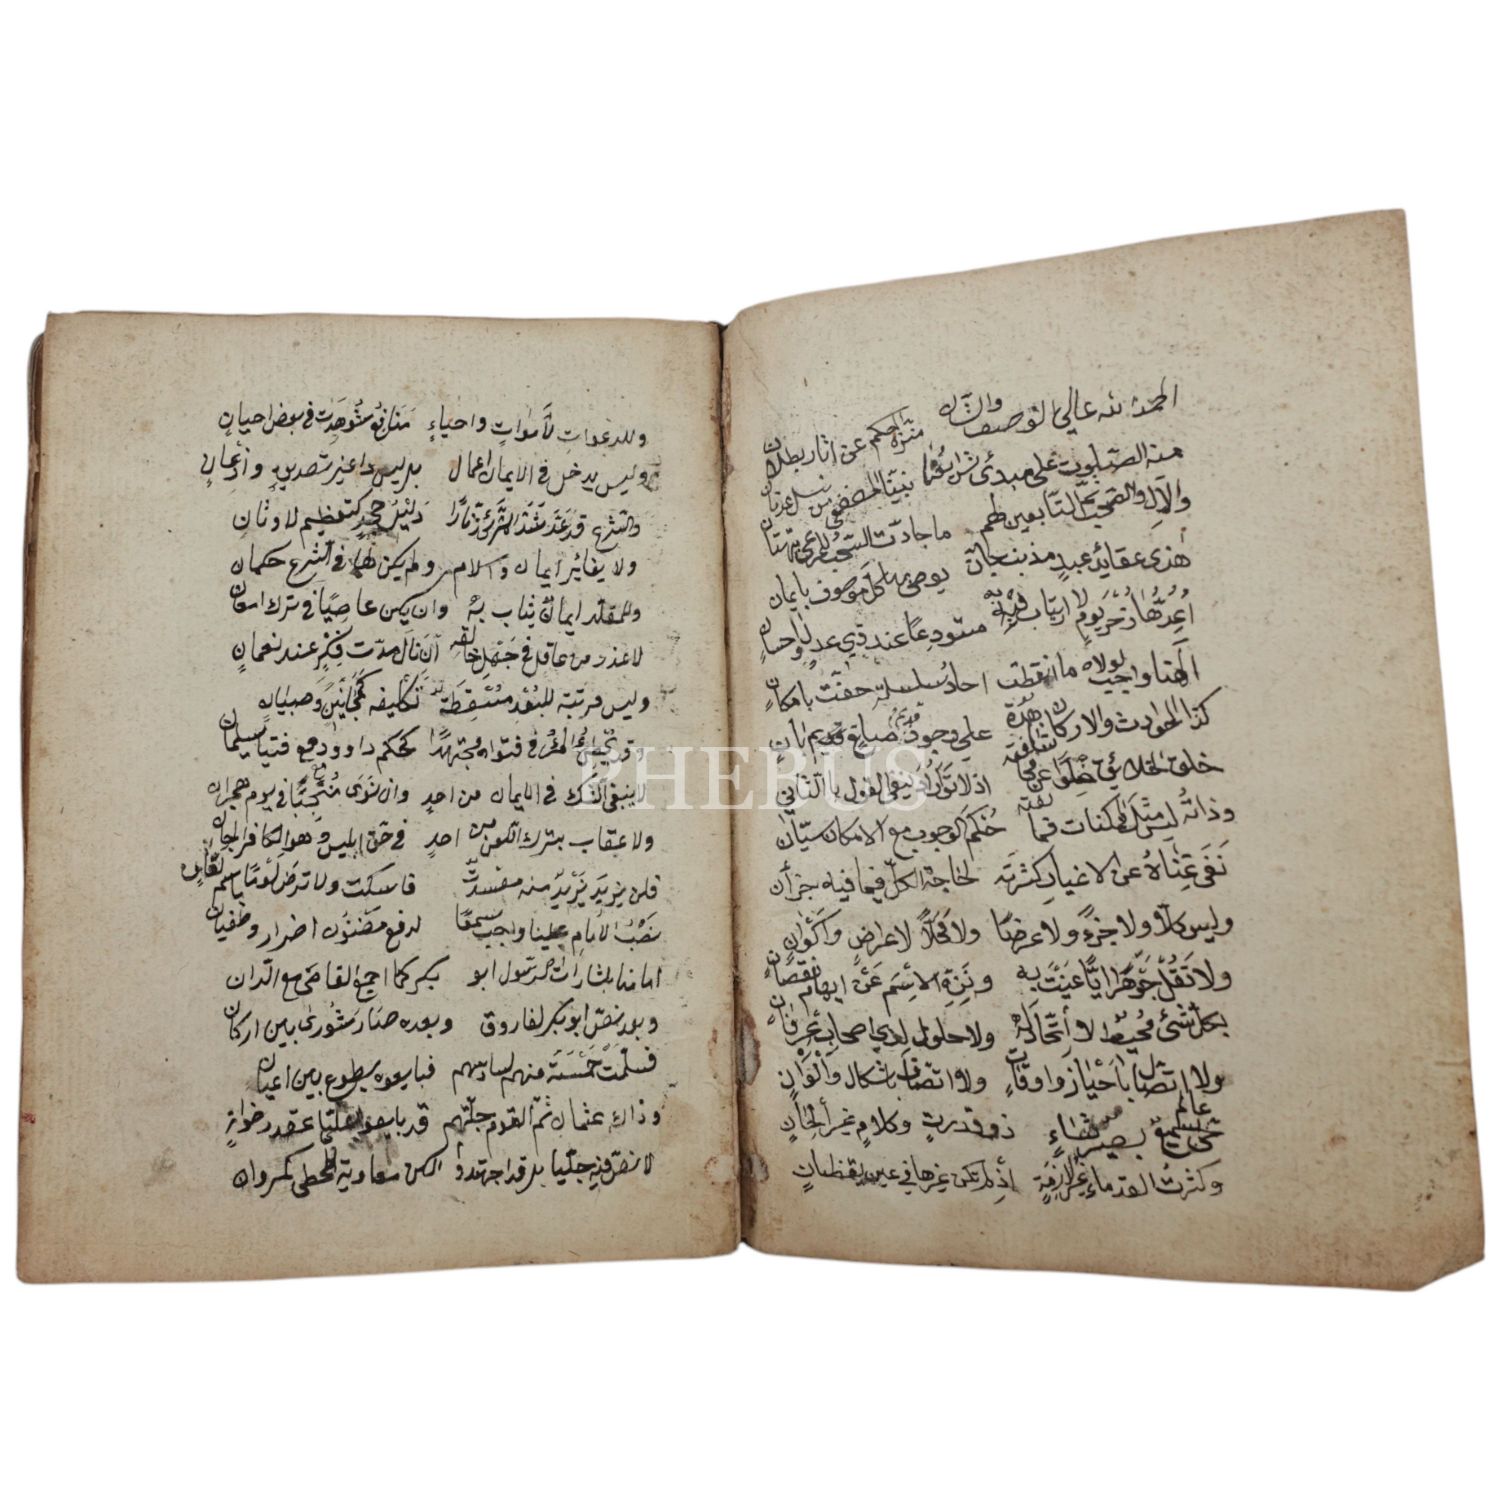 الحمد لله عالي الوصف والشان منزه الحكم عن اثار بطلان
منه الصلوة على مبدئ شرائعنا نبينا المصطفى من نسل عدنان
والآل والصحب ثم التابعين لهم ما جادت السحب للمرعى بهتان
هذى عقائد عبد مذنب جان يوصى بها كل موصوف بايمان
اعدها ذخر يوم لا ارتياب به مستودعا عند ذي عدل واحسان
الهنا واجب لولاه ما انقطعت احاد سلسلة حفت بامكان
كذا الحوادث والاركان شاهدة على وجود قديم صانع بان
خلق الخلائق خلوا عن مخالفة اذ لا توارد ينفي القول بالثاني
وذاته ليس مثل الممكنات فما حكم الوجوب مع الامكان سيان
نفى غناه عن الاغيار كثرته لحاجة الكل فيما فيه جزآن
وليس كلا ولا جزءا ولا عرضا ولا محلا لاعراض واكوان
ولا تقل جوهرا ايا عنيت به ونزه الاسم عن ايهام نقصان
بكل شئ محيط لا اتحاد له ولا حلول لدى اصحاب عرفان
ولا اتصال باحياز واوقات ولا اتصاف باشكال والوان
حي سميع بصير عالم شاء ذو قدرة وكلام غير ألحان
وكثرت القدماء غير لازمة اذ لم تكن غيرها في عين يقظان
وللدعوات لأموات واحياء منافع شوهدت في بعض احيان
وليس يدخل في الايمان اعمال بل ليس ذا غير تصديق واذعان
والشرع قد عد شد المرء زنارا دليل جحد كتعظيم لاوثان
ولا يغاير ايمان واسلام ولم يكن لهما في الشرع حكمان
وللمقلد ايمان يثاب به وان يكن عاصيا في ترك امعان
لا عذر من عاقل في جهل خالقه آن نال مدت فكر عند نعمان
وليس مرتبة للعبد مسقطة تكليفه كمجانين وصبيان
وقد يخطئ المرء في فتواه مجتهدا كحكم داوود مع فتيا سليمان
لا ينبغي الشك في الايمان من احد وان نوى منجيا في يوم هجران
ولا عقاب بترك اللعن من احد في حق ابليس وهو الكافر الجان
فلن يزيد يزيد منه مفسدة فاسكت ولا ترض لوثا باسم لعان
نصب الأمام علينا واجب سمعا لدفع مظنون اضرار وطغيان
امامنا باشارات الرسول ابو بكر كما اجمع القاصى مع الدان
وبعد نص ابو بكر لفاروق وبعده صار شورى بين اركان
فسلمت خمسة منهم لسادسهم فبايعوه بطوع بين اعيان
وذاك عثمان ثم القوم جلتهم قد بايعوا عليا عقد رضوان
لا نص فيه جليا بل قد اجتهدوا لكن معاوية المخطى كمروان